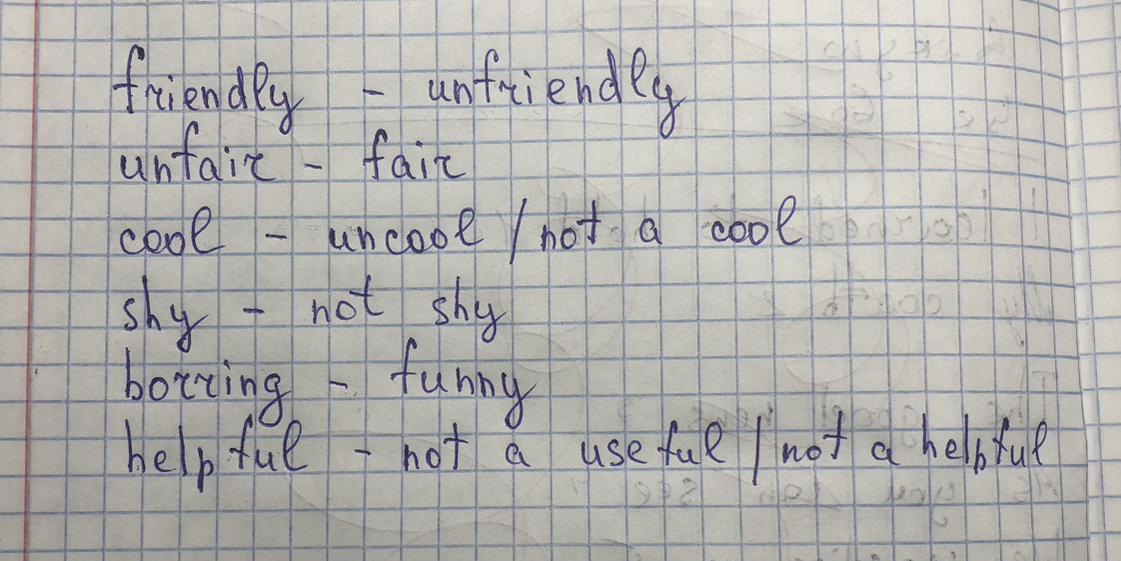 friendly - unfriendly
unfair - fair
cool - uncool / not a cool
shy - not shy
borring - funny
helpful - not a useful / not a helpful